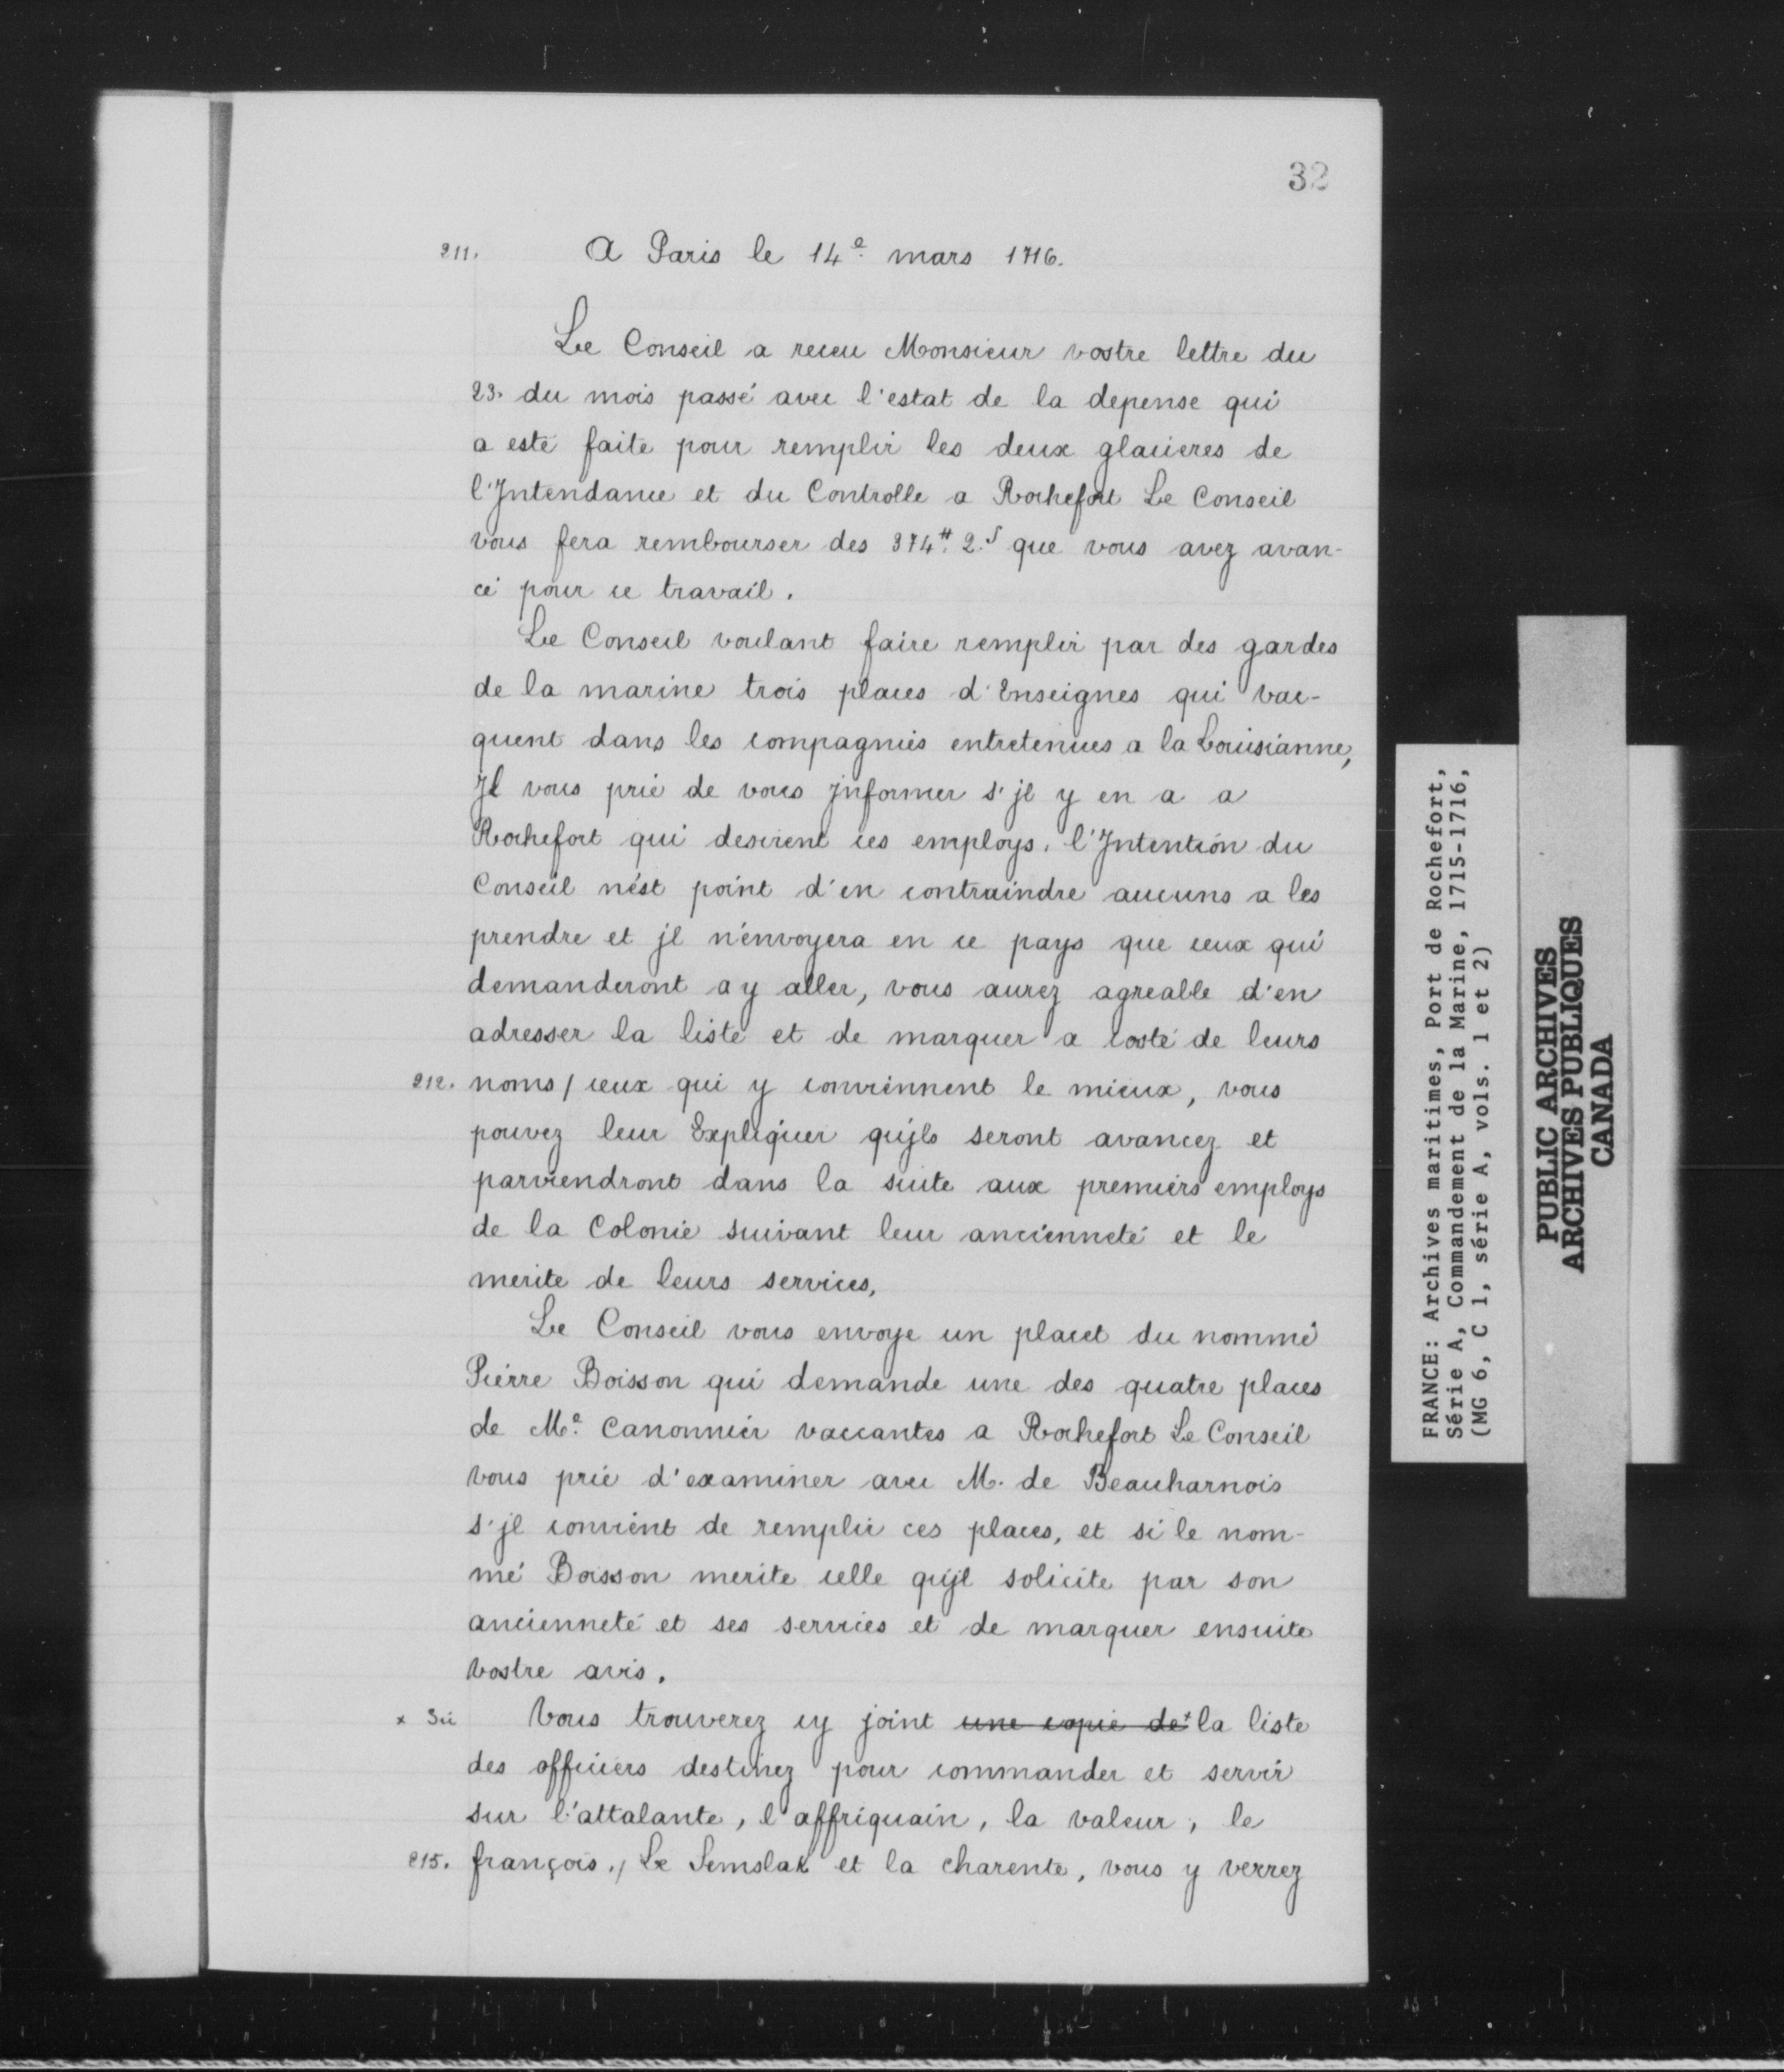 32
211. A Paris le 14e mars 1716.
Le Conseil a receu Monsieur vostre lettre du
23. du mois passé avec l'estat de la depense qui
a esté faite pour remplir les deux glacieres de
l'Jntendance et du Controlle a Rochefort Le Conseil
vous fera rembourser des 374# 2.s que vous avez avan-
cé pour ce travail.
Le Conseil voulant faire remplir par des gardes
de la marine trois places d'Enseignes qui vac-
quent dans les compagnies entretenues a la Louisianne,
Jl vous prie de vous jnformer s'jl y en a a
Rochefort qui desirent ces employs, l'Jntention du
Conseil n'est point d'en contraindre aucuns a les
prendre et jl n'envoyera en ce pays que ceux qui
demanderont a y aller, vous aurez agreable d'en
adresser la liste et de marquer a costé de leurs
212. noms / ceux qui y conviennent le mieux, vous
pouvez leur Expliquer qu'jls seront avancez et
parviendront dans la suite aux premiers employs
de la Colonie suivant leur ancienneté et le
merite de leurs services,
Le Conseil vous envoye un placet du nommé
Pierre Boisson qui demande une des quatre places
de Me Canonnier vaccantes a Rochefort Le Conseil
vous prie d'examiner avec M. de Beauharnois
s'jl convient de remplir ces places, et si le nom-
mé Boisson merite celle qu'jl solicite par son
ancienneté et ses services et de marquer ensuite
vostre avis.
x Sic Vous trouverez cy joint une copie de x la liste
des officiers destinez pour commander et servir
sur l'attalante, l'affriquain, la valeur, le
215. françois, / Le Semslak et la charente, vous y verrez
FRANCE: Archives maritimes, Port de Rochefort,
Série A, Commandement de la Marine, 1715-1716,
(MG 6, C 1, série A, vols. 1 et 2)
PUBLIC ARCHIVES
ARCHIVES PUBLIQUES
CANADA